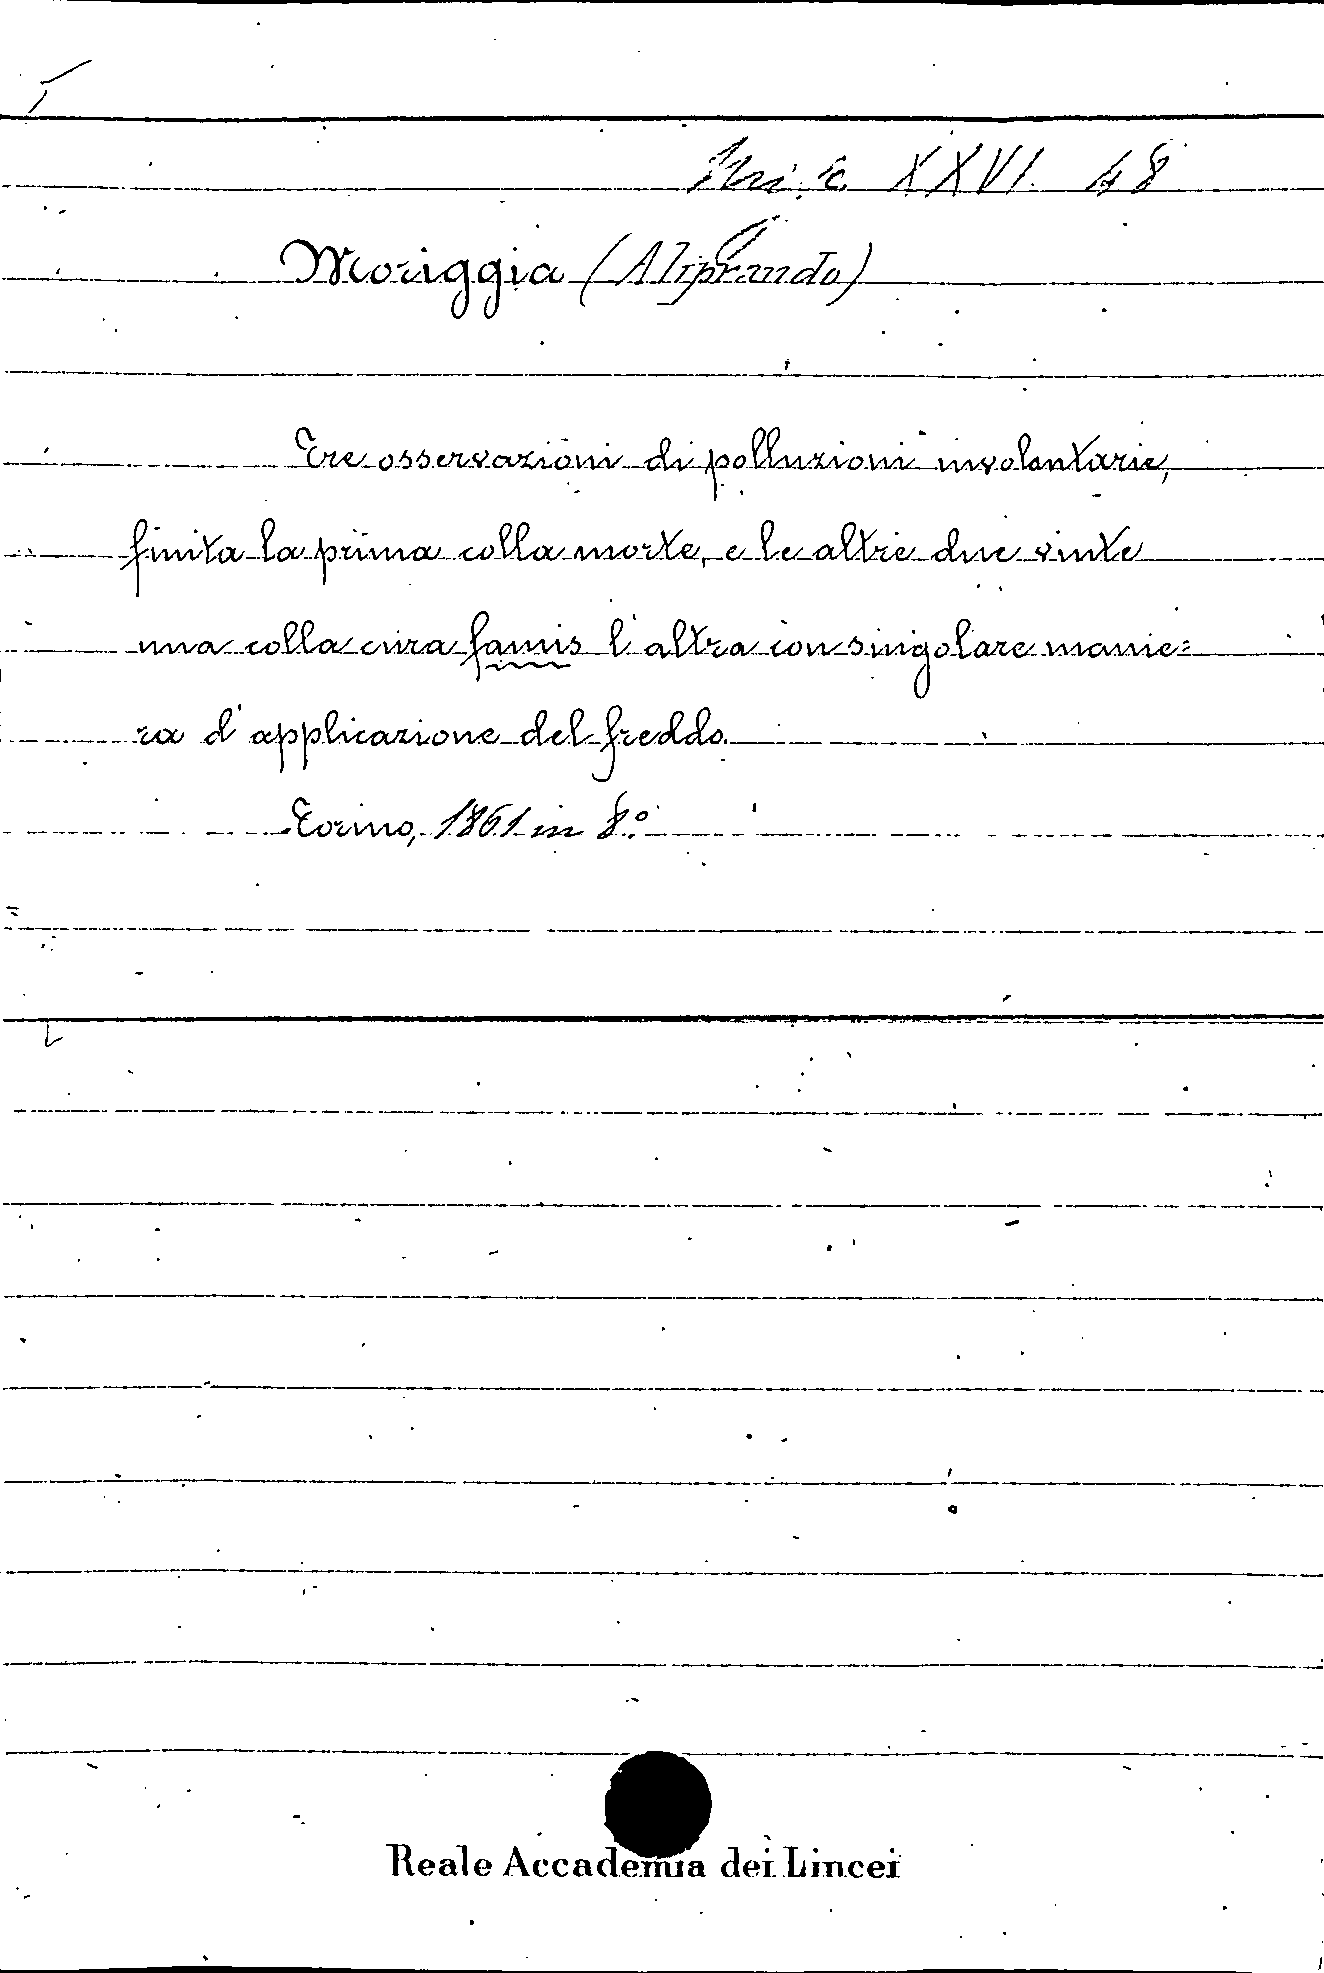 XXVI. 48
Moriggia (Aliprando)
Tre osservazioni di polluzioni involontarie,
finita la prima colla morte, e le altre due vinte
una colla cura famis l'altra con singolare manie=
ra d'applicazione del freddo.
Torino, 1861 in 8.º
Reale Accademia dei Lincei